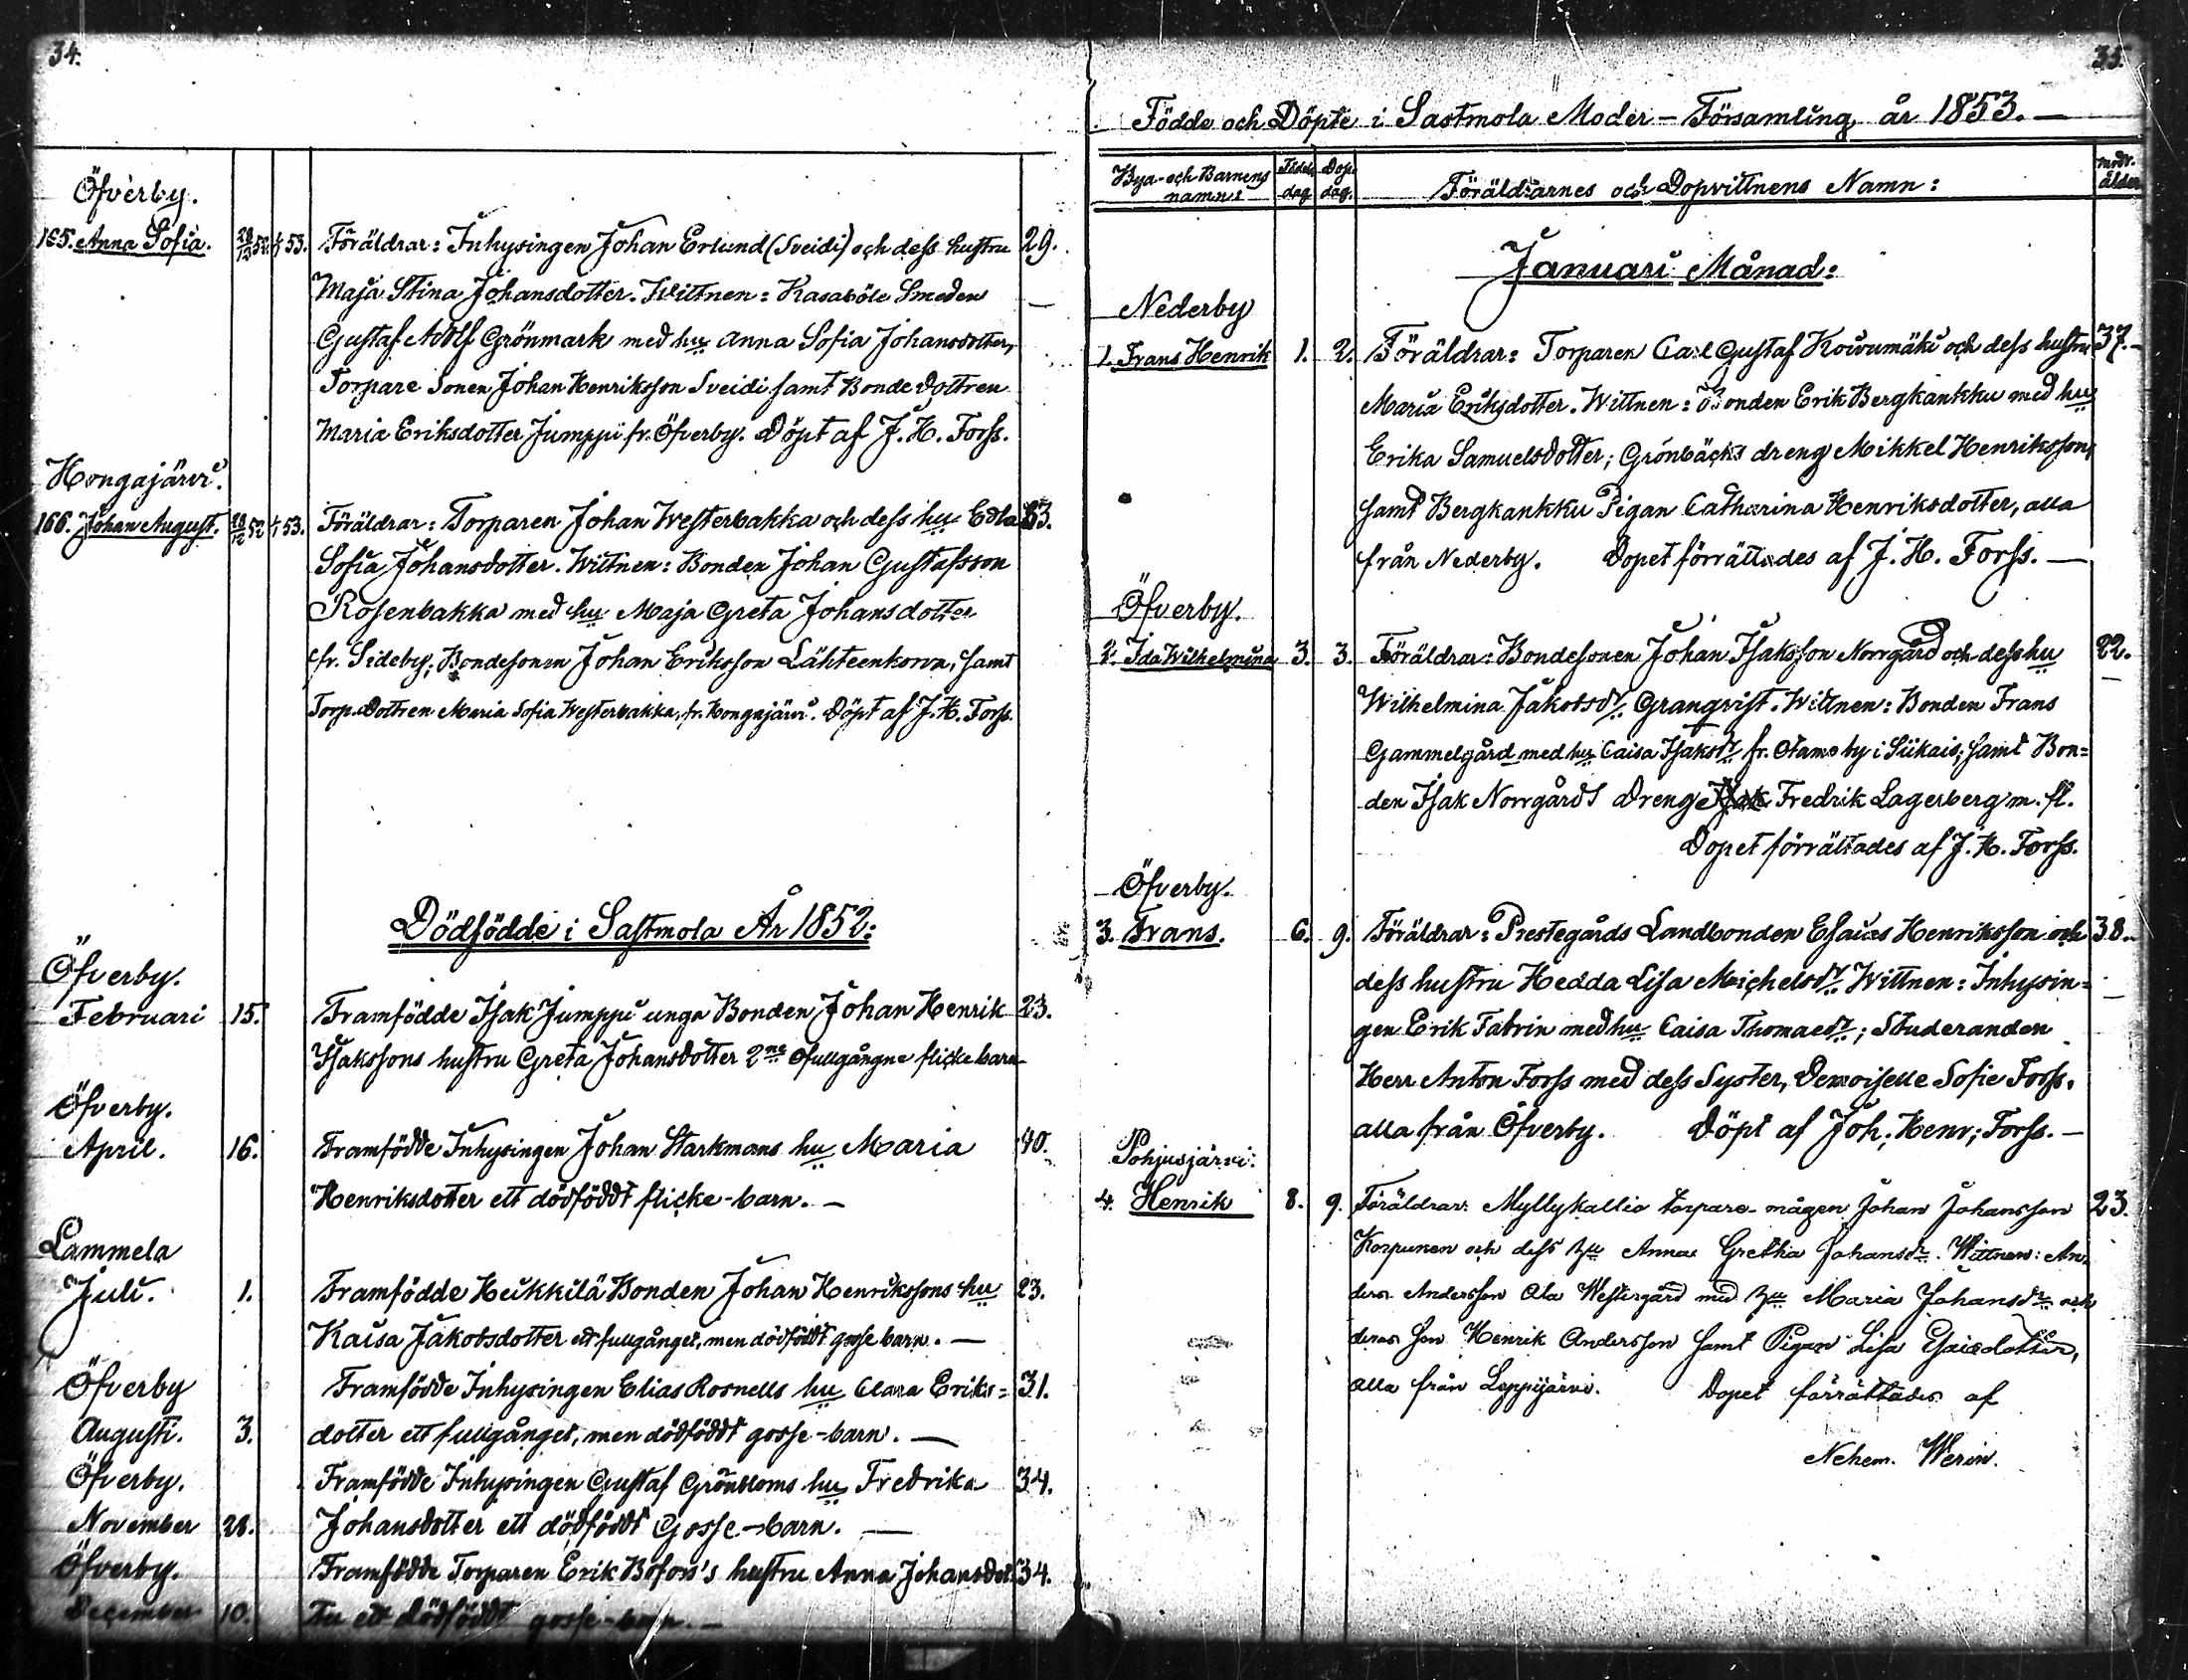 34.
Öfverby.
165. Anna Sofia. 28/12 52. 1/1 53. Föräldrar: Inhysingen Johan Erlund (Sveidi) och dess hustru 29.
Maja Stina Johansdotter. Wittnen: Kasaböle Smeden
Gustaf Adolf Grönmark med hu Anna Sofia Johansdotter,
Torpare Sonen Johan Henriksson Sveidi samt Bonde dottren
Maria Eriksdotter Jumppi fr. Öfverby. Döpt af J. H. Forss.
Hongajärvi.
166. Johan August. 52 1/1 53. Föräldrar: Torparen Johan Westerbakka och dess hu Edla 33.
Sofia Johansdotter. Wittnen: Bonden Johan Gustafsson
Rosenbakka med hu Maja Greta Johansdotter
fr. Sideby; Bondesonen Johan Eriksson Lähteenkorva, samt
Torp. Dottren Maria Sofia Westerbakka, fr. Hongajärvi. Döpt af J. H. Forss.
Dödfödde i Sastmola År 1852:
Öfverby.
Februari 15. Framfödde Isak Jumppi unga Bonden Johan Henrik 23.
Isakssons hustru Greta Johansdotter 2ne ofullgångne flickebarn
Öfverby.
April. 16. Framfödde Inhysingen Johan Starkmans hu Maria 40.
Henriksdotter ett dödfödt flicke-barn. —
Lammela
Juli. 1. Framfödde Heikkilä Bonden Johan Henrikssons hu 23.
Kaisa Jakobsdotter ett fullgånget, men dödfödt gosse barn. —
Öfverby Framfödde Inhysingen Elias Rosnells hu Clara Eriks= 31.
Augusti. 3. dotter ett fullgånget, men dödfödt gosse-barn. —
Öfverby. Framfödde Inhysingen Gustaf Grönbloms hu Fredrika 34.
November 28. Johansdotter ett dödfödt Gosse-barn. —
Öfverby. Framfödde Torparen Erik Bofors's hustru Anna Johansdot 34.
December 10. Ter ett dödfödt gosse-barn. —
35.
Födde och Döpte i Sastmola Moder-Församling år 1853. —
Bya- och Barnens namn: Födels dag. Dop. dag. Föräldrarnes och Dopvittnens Namn: modr. ålder
Januari Månad:
Nederby
1. Frans Henrik 1. 2. Föräldrar: Torparen Carl Gustaf Koivumäki och dess hustru 37.
Maria Eriksdotter. Wittnen: Bonden Erik Bergkankku med hu
Erika Samuelsdotter; Grönbäcks dreng Mikkel Henriksson,
samt Bergkankku Pigan Catharina Henriksdotter, alla
från Nederby. Dopet förrättades af J. H. Forss. —
Öfverby.
2. Ida Wilhelmina 3. 3. Föräldrar: Bondesonen Johan Isaksson Norrgård och dess hu 22.
Wilhelmina Jakobsdr Granqvist. Wittnen: Bonden Frans
Gammelgård med hu Caisa Isaksdr fr. Otamo by i Siikais; samt Bon=
den Isak Norrgårds Dreng Fredrik Lagerberg m. fl.
Dopet förrättades af J. H. Forss.
Öfverby.
3. Frans. 6. 9. Föräldrar: Prestegårds Landbonden Esaias Henriksson och 38.
dess hustru Hedda Lisa Michelsdr. Wittnen: Inhysin=
gen Erik Fabrin med hu Caisa Thomaedr; Studeranden
Herr Anton Forss med dess Syster, Demoiselle Sofie Forss.
alla från Öfverby. Döpt af Joh; Henr; Forss. —
Pohjusjärvi.
4. Henrik 8. 9. Föräldrar: Myllykallio torpare-mågen Johan Johansson 23.
Korpunen och dess hu Anna Gretha Johansdr. Wittnen: An
ders Andersson Ala Westergård med hu Maria Johansdr och
deras son Henrik Andersson samt Pigan Lisa Esaiedotter,
alla från Leppijärvi. Dopet förrättades af
Nehem. Werin.